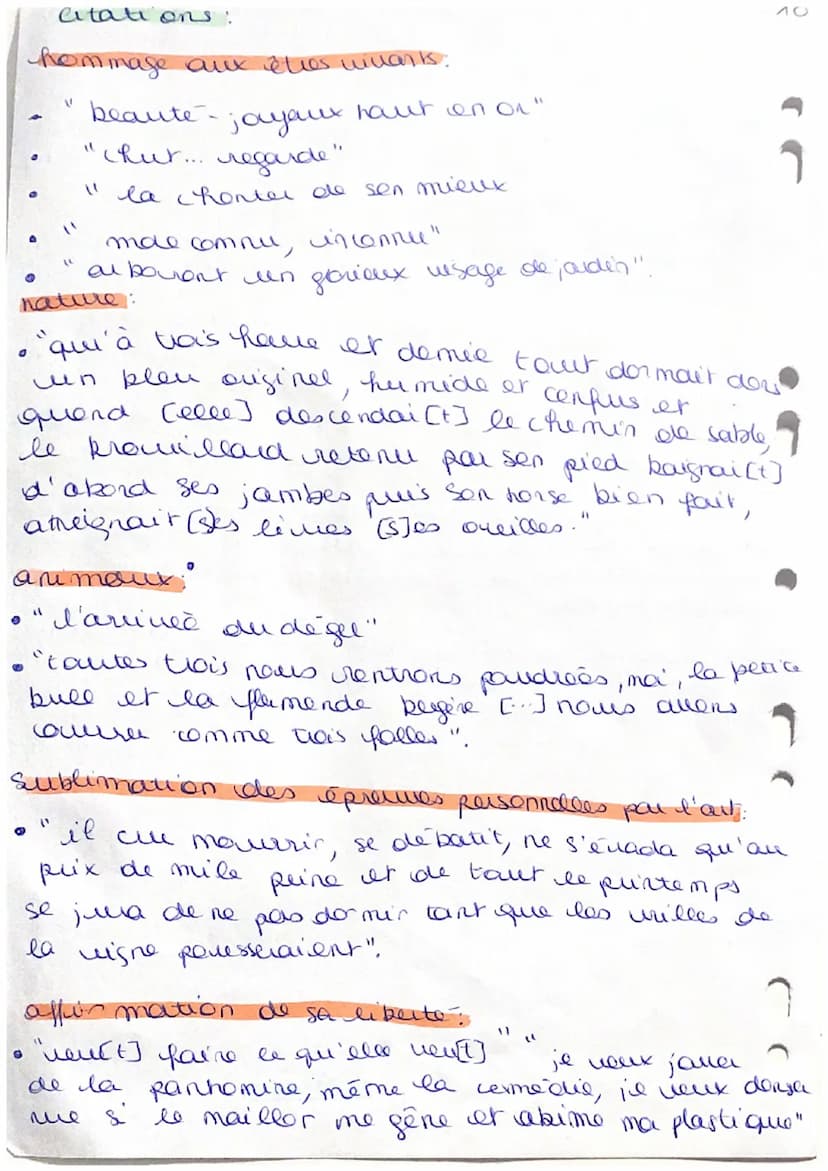 citations :
10
hommage aux êtres vivants :
• "beauté - joyaux haut en or"
• "chut... regarde"
• " la chanter de son mieux
• " mde connu, inconnu"
• " arborant un gorieux visage de jardin".
nature :
• "qu'à trois heure et demie tout dormait dans
un bleu originel, humide et confus et
quand [elle] descendai[t] le chemin de sable,
le brouillard retenu par son poid baignai[t]
d'abord ses jambes puis son torse bien fait,
atteignait [s]es lèvres [s]es oreilles."
animaux :
• "l'arrivée du dégel"
• "toutes trois nous rentrons poudrées, moi, la petite
bull et la flamande bergère [...] nous avons
courru comme trois folles".
sublimation des épreuves personnelles par l'art :
• "il cru mourrir, se débatit, ne s'évada qu'au
prix de mile peine et de tout le printemps
se jura de ne pas dormir tant que les vrilles de
la vigne pousseraient".
affirmation de sa liberté :
• "veu[t] faire ce qu'elle veu[t]" "je veux jouer
de la panhomine, même la comédie, je veux danser
nue si le maillot me gêne et abime ma plastique"